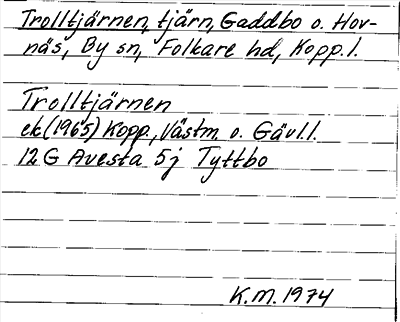 Trolltjärnen, tjärn, Gaddbo o. Hov-
näs, By sn, Folkare hd, Kopp. l.
Trolltjärnen
ek (1965) Kopp., Västm. o. Gävl. l.
12 G Avesta 5j Tyttbo
K.M. 1974